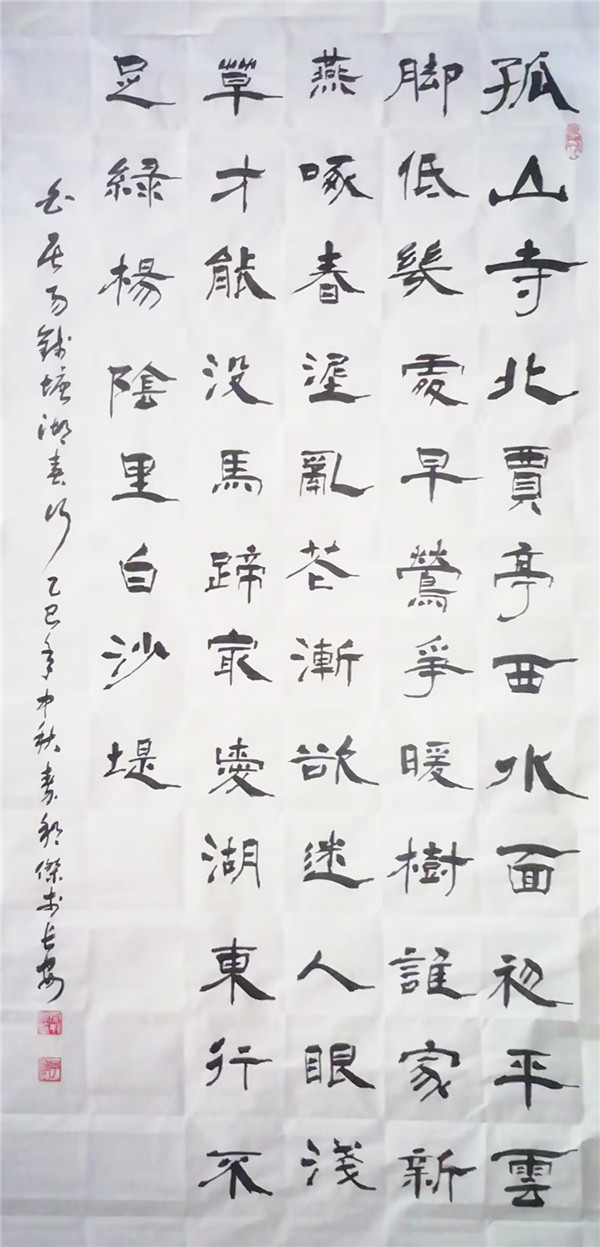 孤山寺北賈亭西水面初平雲
脚低幾處早鶯爭暖樹誰家新
燕啄春泥亂花漸欲迷人眼淺
草才能没馬蹄最愛湖東行不
足綠楊陰里白沙堤
白居易錢塘湖春行 乙巳年中秋 傑书长安